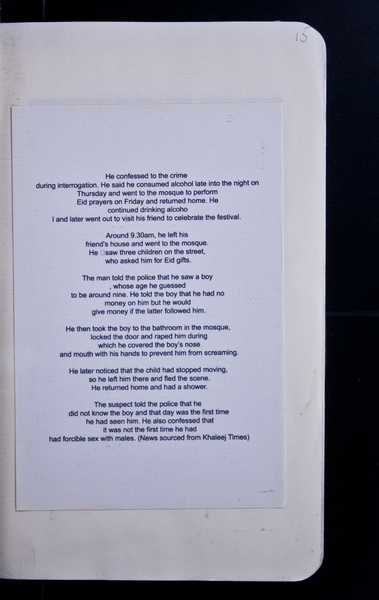 15
He confessed to the crime
during interrogation. He said he consumed alcohol late into the night on
Thursday and went to the mosque to perform
Eid prayers on Friday and returned home. He
continued drinking alcoho
l and later went out to visit his friend to celebrate the festival.
Around 9.30am, he left his
friend's house and went to the mosque.
He □saw three children on the street,
who asked him for Eid gifts.
The man told the police that he saw a boy
, whose age he guessed
to be around nine. He told the boy that he had no
money on him but he would
give money if the latter followed him.
He then took the boy to the bathroom in the mosque,
locked the door and raped him during
which he covered the boy's nose
and mouth with his hands to prevent him from screaming.
He later noticed that the child had stopped moving,
so he left him there and fled the scene.
He returned home and had a shower.
The suspect told the police that he
did not know the boy and that day was the first time
he had seen him. He also confessed that
it was not the first time he had
had forcible sex with males. (News sourced from Khaleej Times)